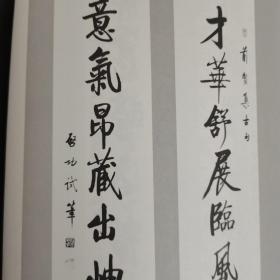 才華舒展臨風
意氣昂藏出岫
啓功試筆